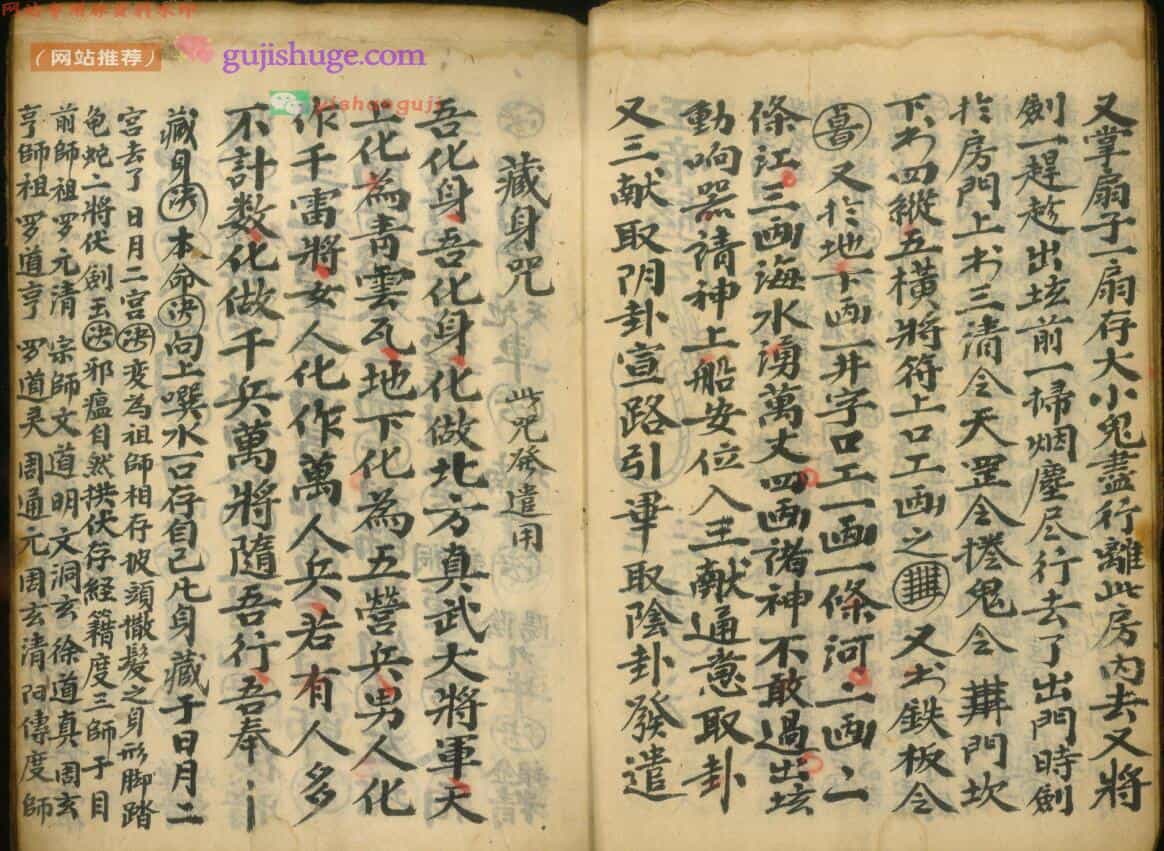 网站专项非资料水印
(网站推荐)
gujishuge.com
yishenguji
又掌扇子一扇存大小鬼盡行離此房内去又將
劍一趕趁出垓前一掃烟塵尽行去了出門時劍
扵房門上书三清令天罡令捲鬼令 門坎
下书四縱五橫將符上口工画之 又书鉄板令
又扵地下画一井字口工一画一條河二画二
條江三画海水湧萬丈四画諸神不敢過出垓
動响器請神上船安位入主献通意取卦
又三献取阴卦宣路引畢取陰卦發遣
藏身咒 此咒發遣用
吾化身吾化身化做北方真武大將軍天
上化為青雲瓦地下化為五營兵男人化
作千雷將女人化作萬人兵若有人多
不計數化做千兵萬將隨吾行吾奉
藏身決本命決向上噀水一口存自己凡身藏于日月二
宮去了日月二宮決变為祖師相存披頭撒髮之身形脚踏
龟蛇二將伏劍玉決邪瘟自然拱伏存経籍度三師于目
前師祖罗元清 宗師文道明文洞玄徐道真周玄
亨師祖罗道亨 罗道灵周通元周玄清 傳度師